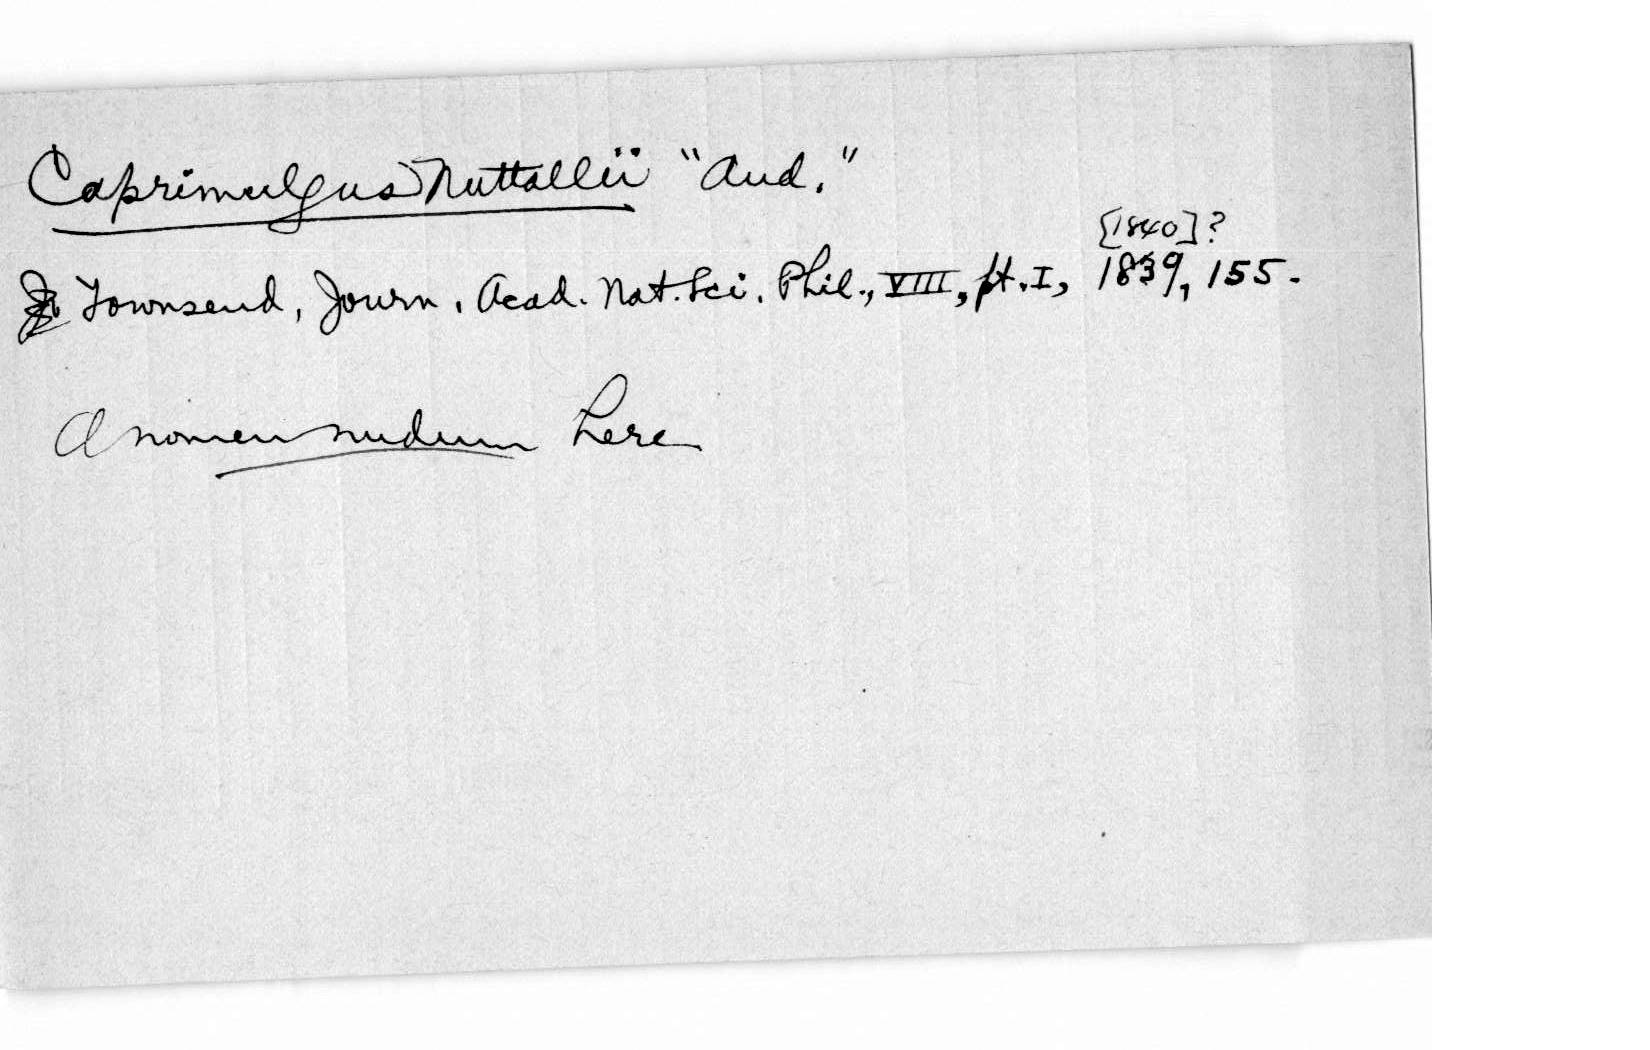 Caprimulgus Nuttallii "Aud."
[1840]?
Townsend, Journ. Acad. Nat. Sci. Phil., VIII, pt. I, 1839, 155.
A nomen nudum here